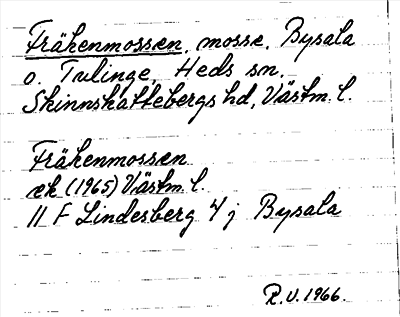 Fräkenmossen, mosse, Bysala
o. Tulinge, Heds sn,
Skinnskattebergs hd, Västm. l.
Fräkenmossen
ek (1965) Västm. l.
11 F Lindesberg 4 j Bysala
R.U. 1966.